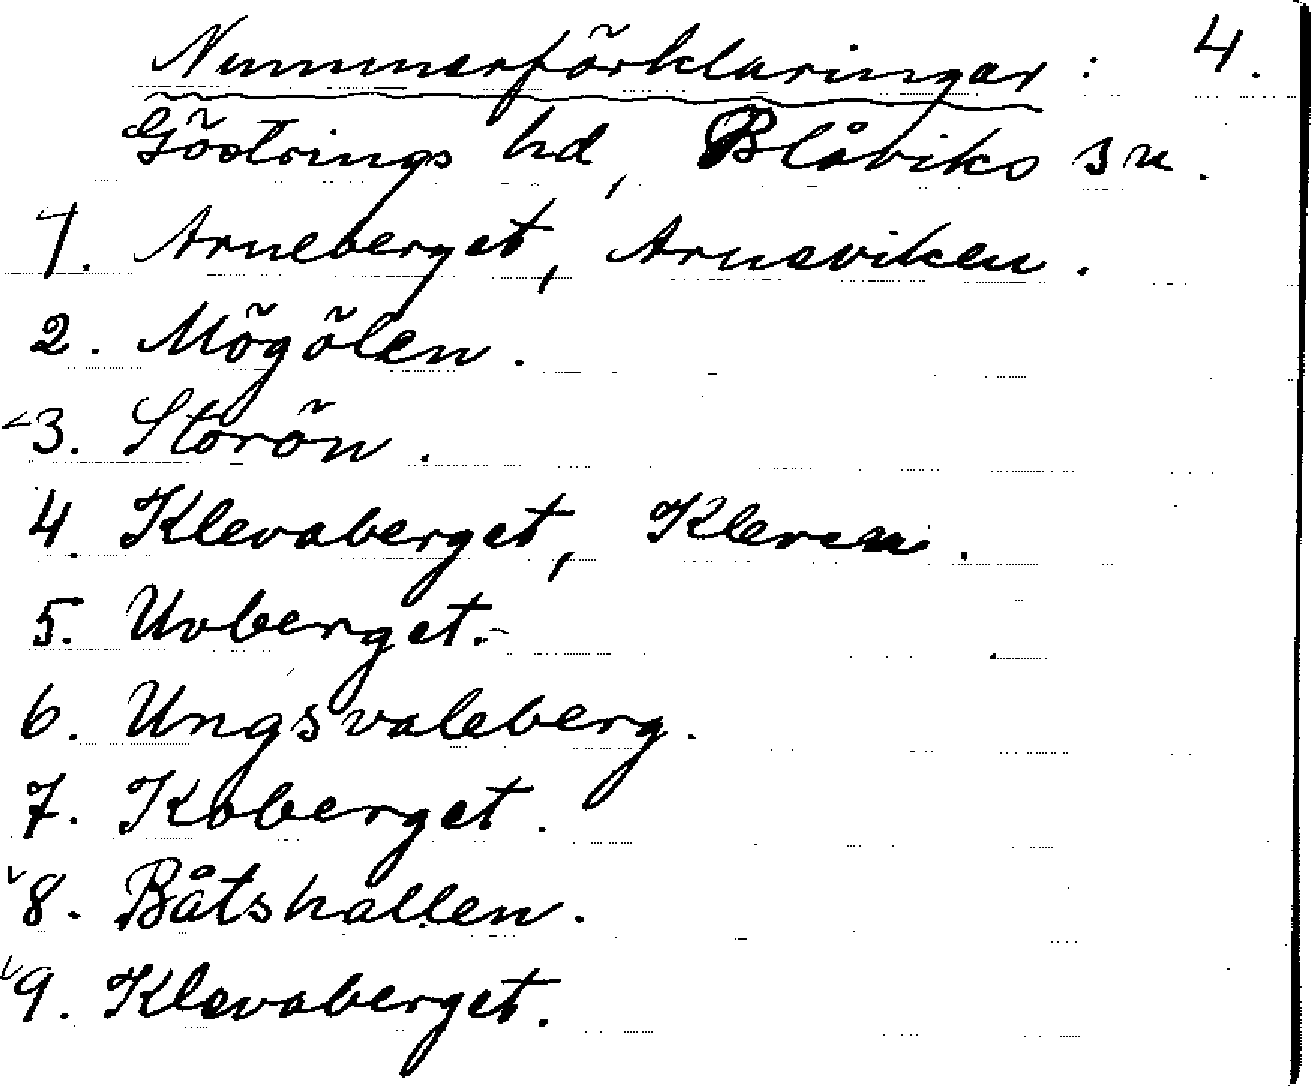 Nummerförklaringar: 4.
Göstrings hd, Blåviks sn.
1. Arneberget, Arnsviken.
2. Mögölen.
3. Storön.
4. Klevaberget, Kleven.
5. Uvberget.
6. Ungsvaleberg.
7. Koberget.
8. Båtshallen.
9. Klevaberget.